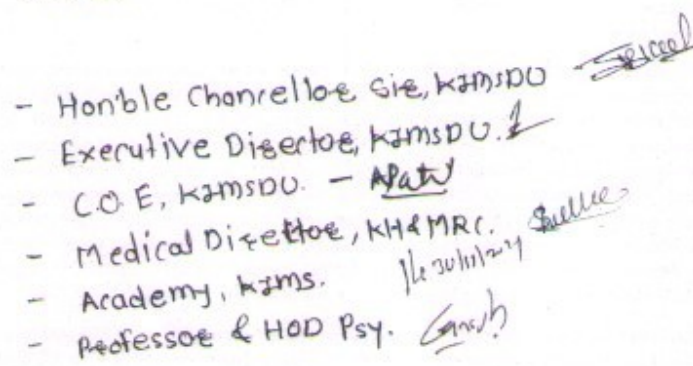 - Hon'ble Chancellor Sir, KIMSDU -
- Executive Director, KIMSDU.
- C.O.E, KIMSDU. - APatil
- Medical Director, KH&MRC.
- Academy, KIMS.
- Professor & HOD Psy.